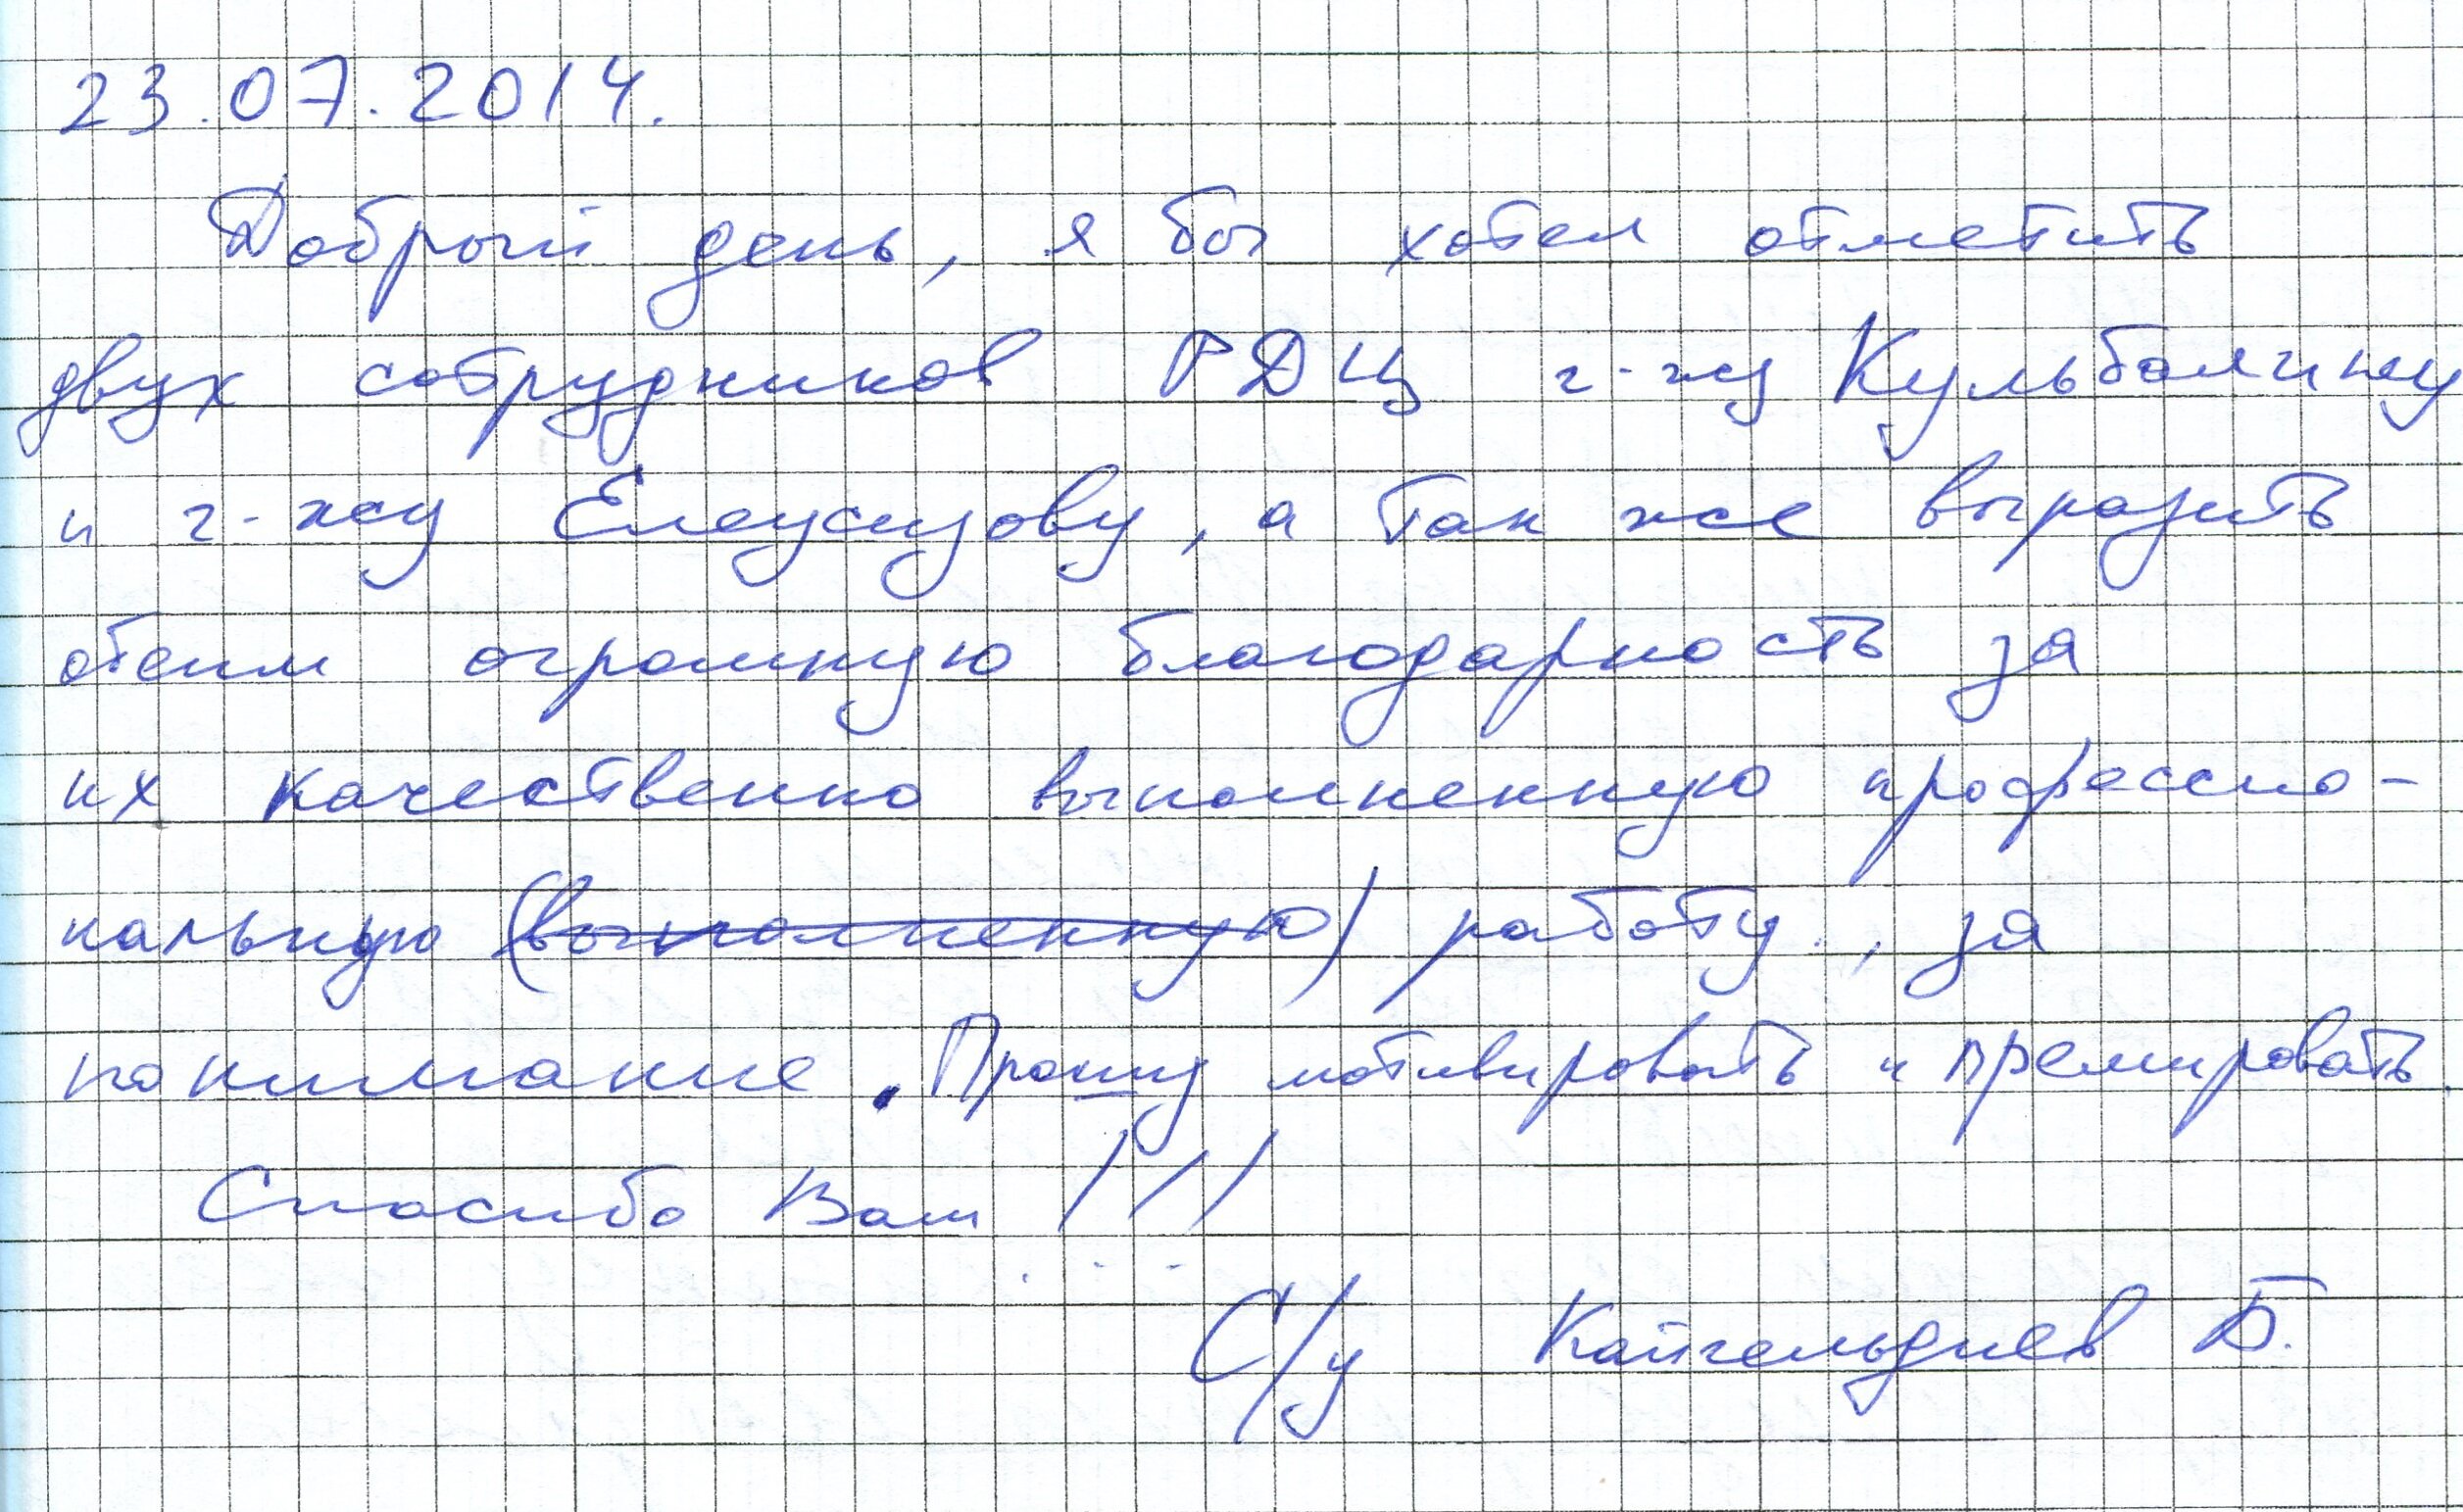 23.07.2014.
Добрый день, я бы хотел отметить
двух сотрудников РДЦ г-жу Кульболину
и г-жу Елеусизову, а так же выразить
обеим огромную благодарность за
их качественно выполненную профессио-
нальную (выполненную) работу, за
понимание. Прошу мотивировать и премировать.
Спасибо Вам!!!
С/у Кайгельдиев Б.